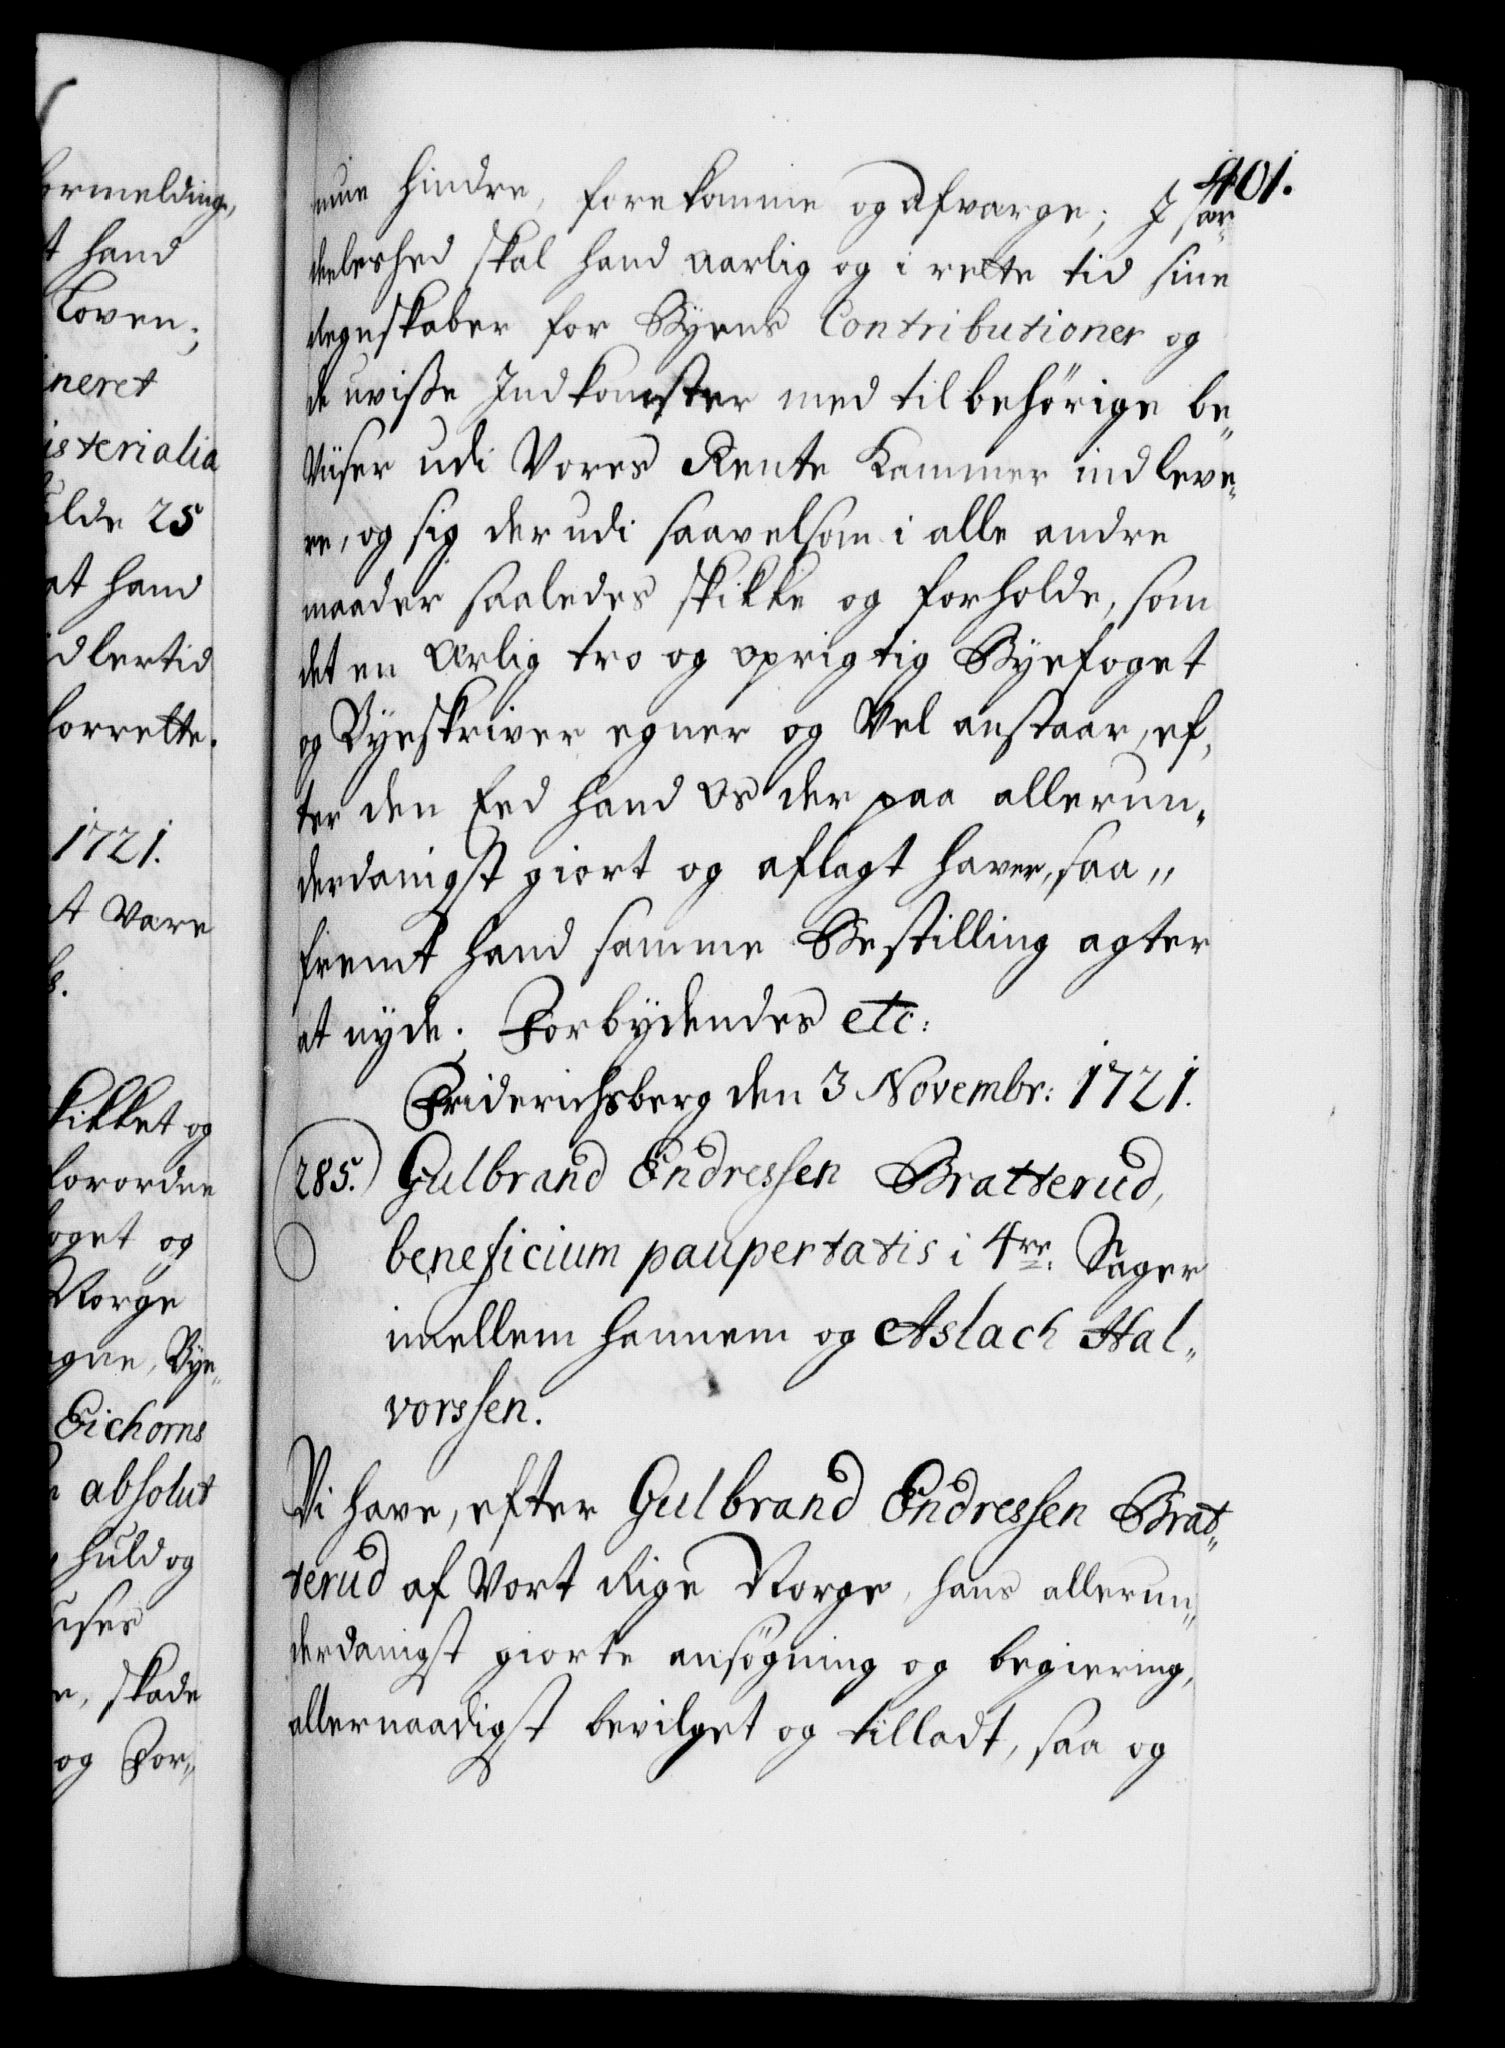 ormelding,
t hand
Loven;
ineret
isterialia
ulde 25
at hand
idlertid
forrette.
1721.
t være
kikket og
forordne
foget og
Norge
egne, Bye„
Eichorns
absolut
huld og
uses
e, skade
og For„
401.
hindre, forekomme og afværge; I sær„
deeleshed skal hand aarlig og i rette tid sine
Regnskaber for Byens Contributioner og
de uvisse Indkomster med tilbehörige be„
Viiser udi Vores Rente Kammer indleve„
re, og sig der udi saavelsom i alle andre
maader saaledes skikke og forholde, som
det en ærlig tro og oprigtig Byefoget
og Byeskriver egner og Vel anstaar, ef„
ter den Eed hand Os der paa allerun„
derdanigst giort og aflagt haver, saa„
fremt hand samme Bestilling agter
at nyde. Forbydendes etc:
Friderichsberg den 3 Novembr: 1721.
285. Gulbrand Endressen Bratterud,
beneficium paupertatis i 4re. Sager
imellem hannem og Aslach Hal„
vorssen.
Vi have, efter Gulbrand Endressen Brat„
terud af Vort Rige Norge, hans allerun„
derdanigst giorte ansögning og begiering,
allernaadigst bevilget og tilladt, saa og